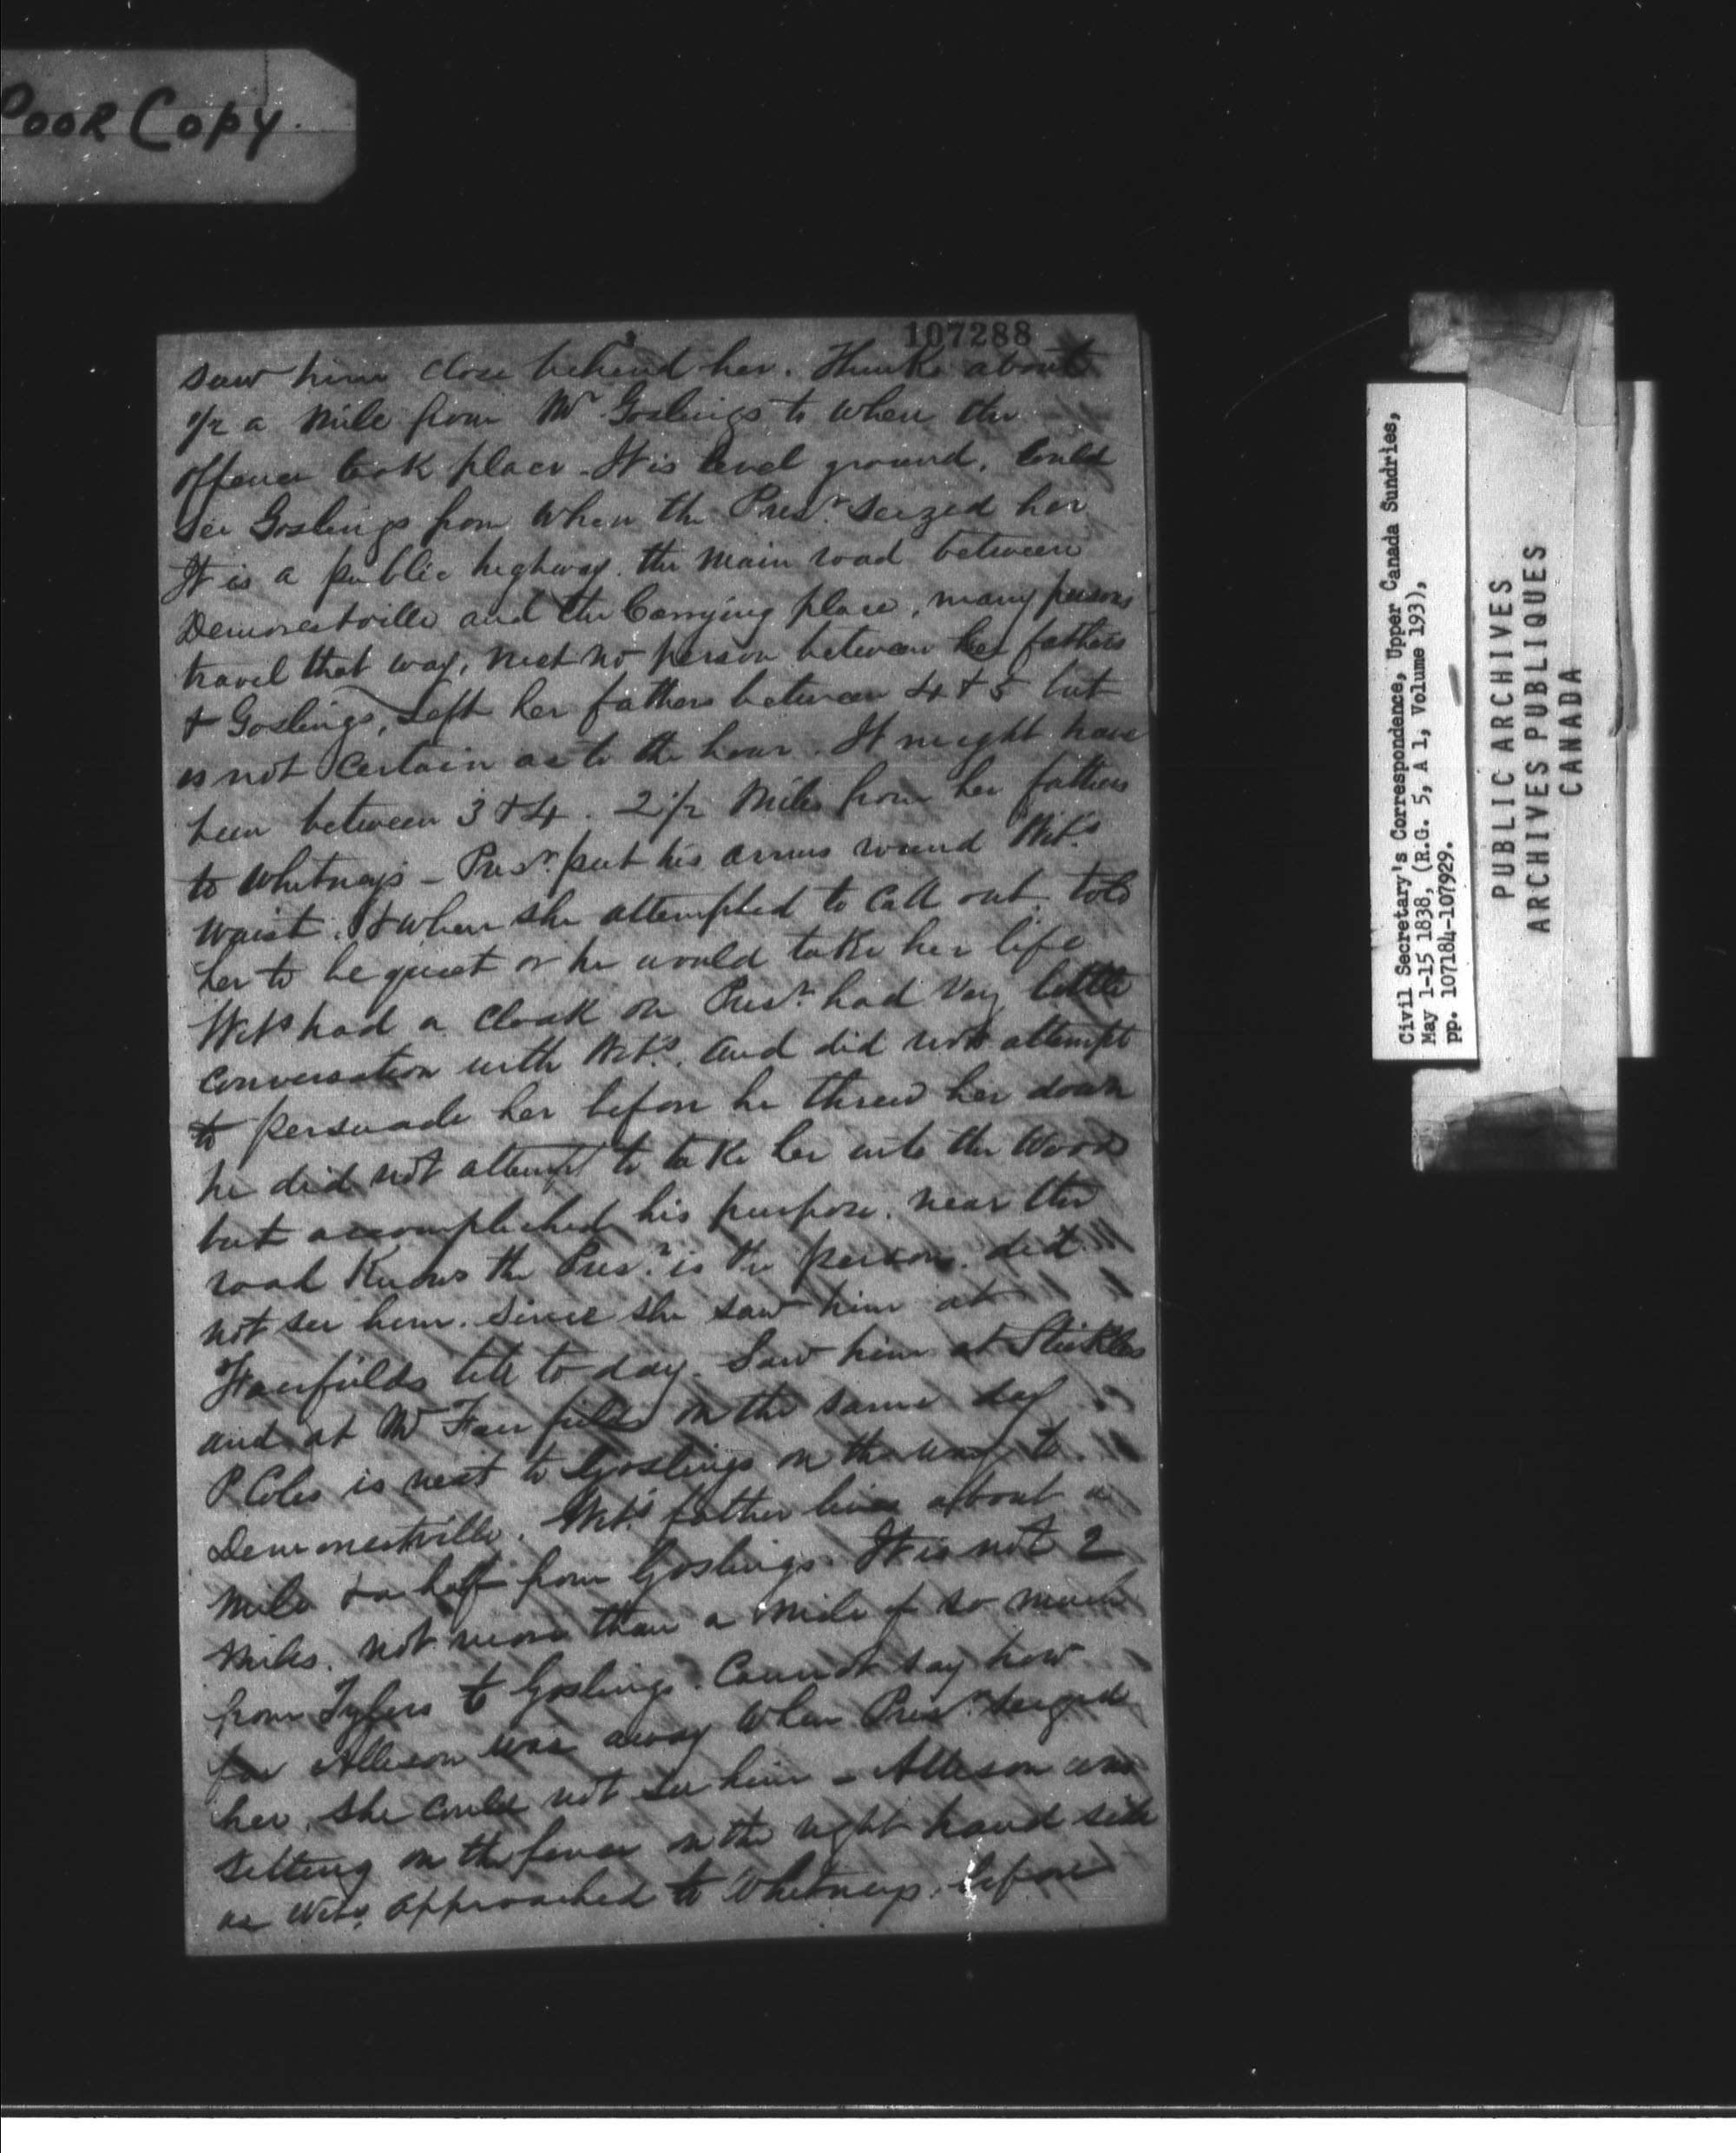 Poor Copy.
107288
saw him close behind her. Thinks about
1/2 a mile from Mr Goslings to when the
offence took place - It is level ground. Could
see Goslings from when the Prisr. seized her
It is a public highway. the main road between
Demorestville and the Carrying place, many persons
travel that way, met no person between her fathers
& Goslings, left her fathers between 4 & 5 but
is not certain as to the hour. It might have
been between 3 & 4. 2 1/2 miles from her fathers
to Whitneys - Prisr. put his arms round Wits.
waist. & when she attempted to call out. told
her to be quiet or he would take her life
Wits had a cloak on Prisr. had very little
conversation with Wits. and did not attempt
to persuade her before he threw her down
he did not attempt to take her into the woods
but accomplished his purpose. near the
road Knows the Prisr. is the person. did
not see him. since she saw him at
Fairfields till to day. Saw him at Stickles
and at Mr Fairfields on the same day
P Coles is next to Goslings on the way to
Demorestville. Wits. father lives about a
mile & a half from Goslings. It is not 2
miles. not more than a mile if so much
from Tylers to Goslings. Cannot say how
far Allison was away when Prisr. seized
her. she could not see him - Allison was
sitting on the fence on the right hand side
as Wits. approached to Whitneys. before
Civil Secretary's Correspondence, Upper Canada Sundries,
May 1-15 1838, (R.G. 5, A 1, Volume 193),
pp. 107184-107929.
PUBLIC ARCHIVES
ARCHIVES PUBLIQUES
CANADA